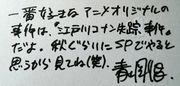 一番好きなアニメオリジナルの
事件は、“江戸川コナン失踪事件”
だよ。秋ぐらいにSPでやると
思うから見てね(笑)。青山剛昌